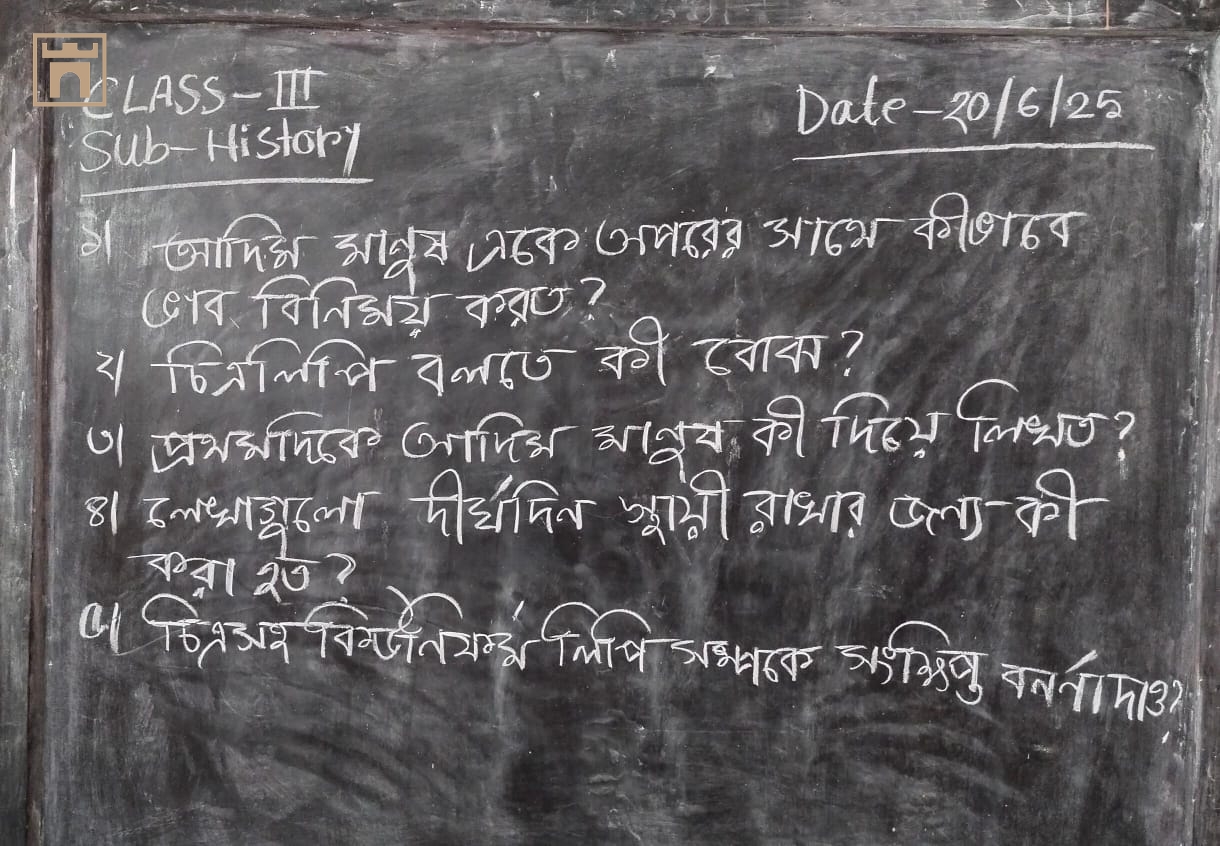 CLASS-III
Date-20/6/25
Sub-History
১। আদিম মানুষ একে অপরের সাথে কীভাবে
ভাব বিনিময় করত?
২। চিত্রলিপি বলতে কী বোঝ?
৩। প্রথমদিকে আদিম মানুষ কী দিয়ে লিখত?
৪। লেখাগুলো দীর্ঘদিন স্থায়ী রাখার জন্য কী
করা হত?
৫। চিত্রসহ লিপি সম্পর্কে সংক্ষিপ্ত দাও?